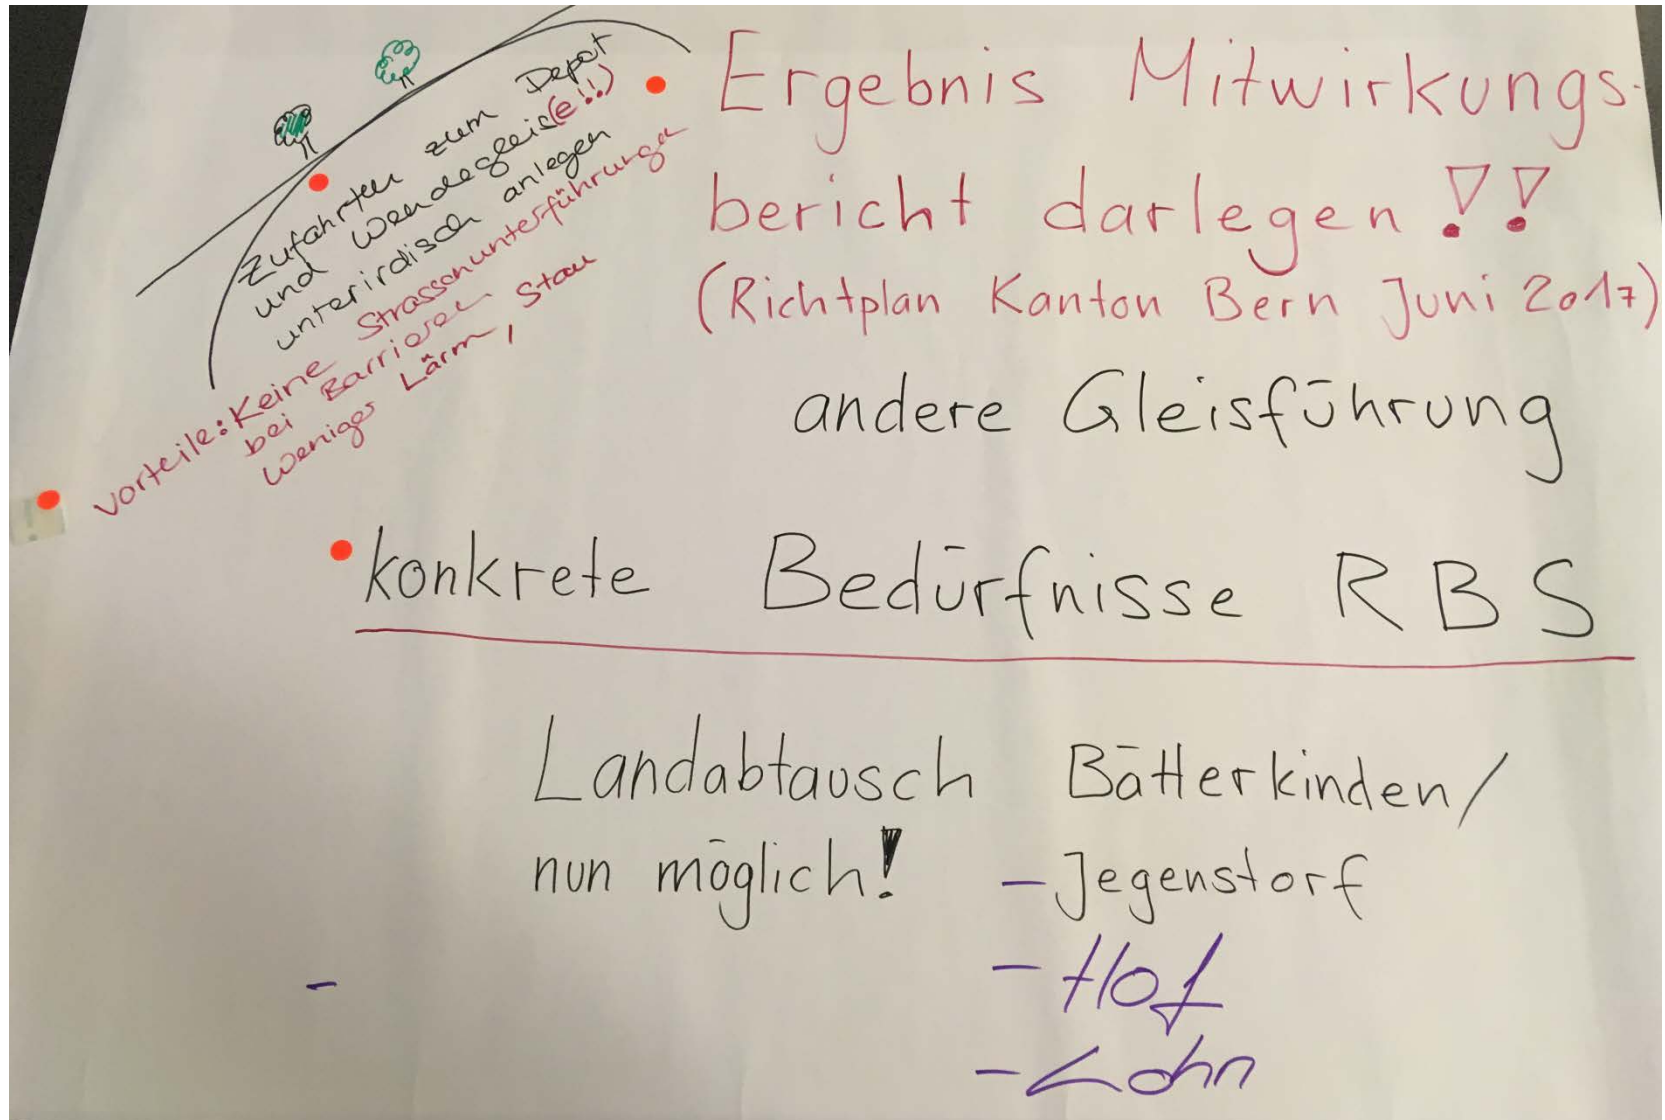 Zufahrten zum Depot
und Wendegleis(e!!)
unterirdisch anlegen
Vorteile: Keine Strassenunterführungen
bei Barrieren
Weniger Lärm, Stau
Ergebnis Mitwirkungs-
bericht darlegen!!
(Richtplan Kanton Bern Juni 2017)
andere Gleisführung
konkrete Bedürfnisse RBS
Landabtausch Bätterkinden/
nun möglich! - Jegenstorf
- Hof
- Lohn